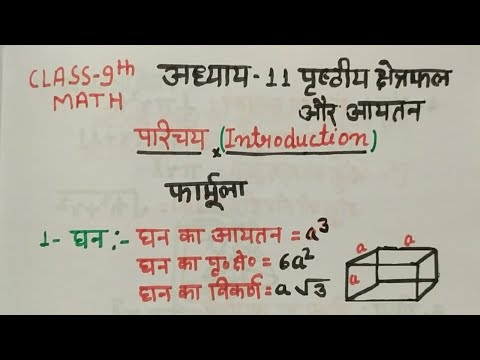 CLASS-9th
MATH
अध्याय-11 पृष्ठीय क्षेत्रफल
और आयतन
परिचय (Introduction)
फार्मूला
1- घन :- घन का आयतन = a³
घन का पृ० क्षे० = 6a²
घन का विकर्ण = a√3
a a
a